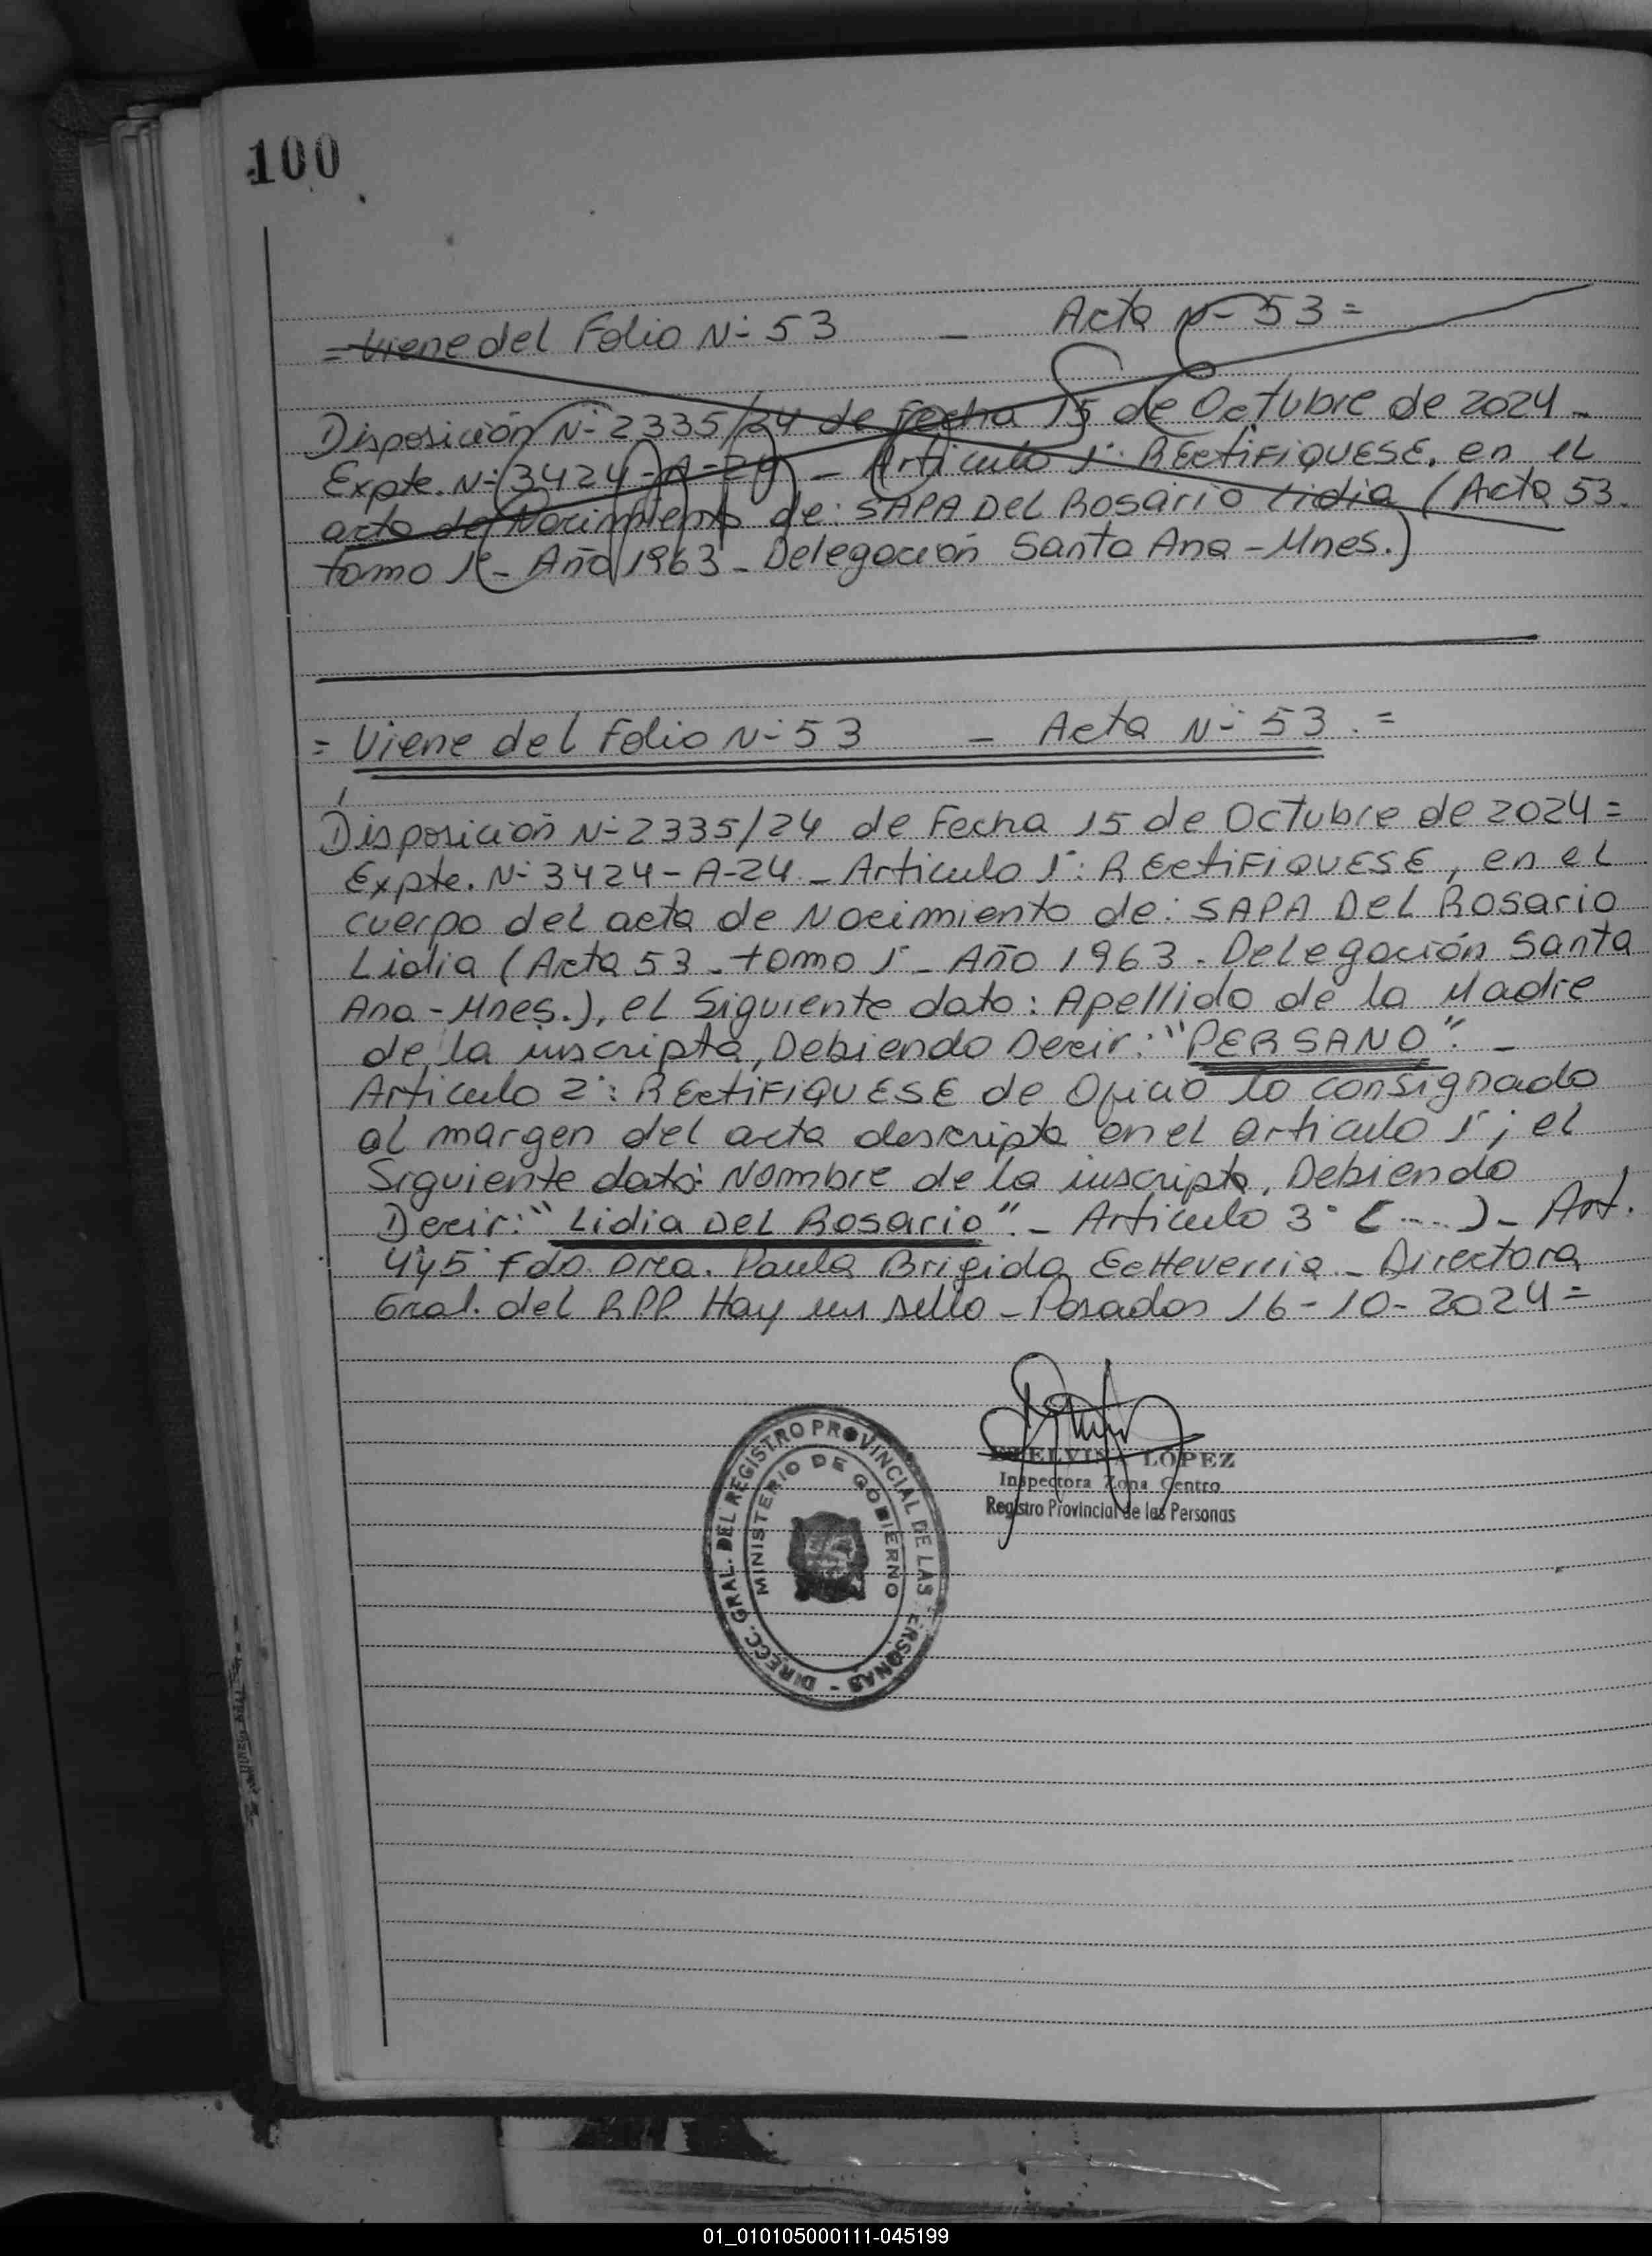 100
= Viene del Folio N-° 53 - Acta N-° 53 =
Disposición N-° 2335/24 de Fecha 15 de Octubre de 2024 -
Expte. N-° 3424-A-24 - Articulo 1°: RECtiFiQUESE, en el
acta de Nacimiento de: SAPA Del Rosario Lidia (Acta 53.
tomo 1° - Año 1963 - Delegación Santa Ana - Mnes.)
= Viene del Folio N-° 53 - Acta N-° 53. =
Disposición N-° 2335/24 de Fecha 15 de Octubre de 2024 =
Expte. N-° 3424-A-24 - Articulo 1°: RECtiFiQUESE, en el
cuerpo del acta de Nacimiento de: SAPA Del Rosario
Lidia (Acta 53 - tomo 1° - Año 1963 - Delegación Santa
Ana - Mnes.), el Siguiente dato: Apellido de la Madre
de la inscripta, Debiendo Decir: "PERSANO". -
Articulo 2°: RECtiFiQUESE de Oficio lo consignado
al margen del acta descripta en el articulo 1°; el
Siguiente dato: Nombre de la inscripta, Debiendo
Decir: "Lidia Del Rosario". - Articulo 3° (...) - Art.
4°y5° Fdo. Dra. Paula Brigida Echeverria - Directora
Gral. del RPP. Hay un sello - Posadas 16-10-2024 =
ETELVINA LOPEZ
Inspectora Zona Centro
Registro Provincial de las Personas
DIRECC. GRAL. DEL REGISTRO PROVINCIAL DE LAS PERSONAS -
MINISTERIO DE GOBIERNO
01_010105000111-045199